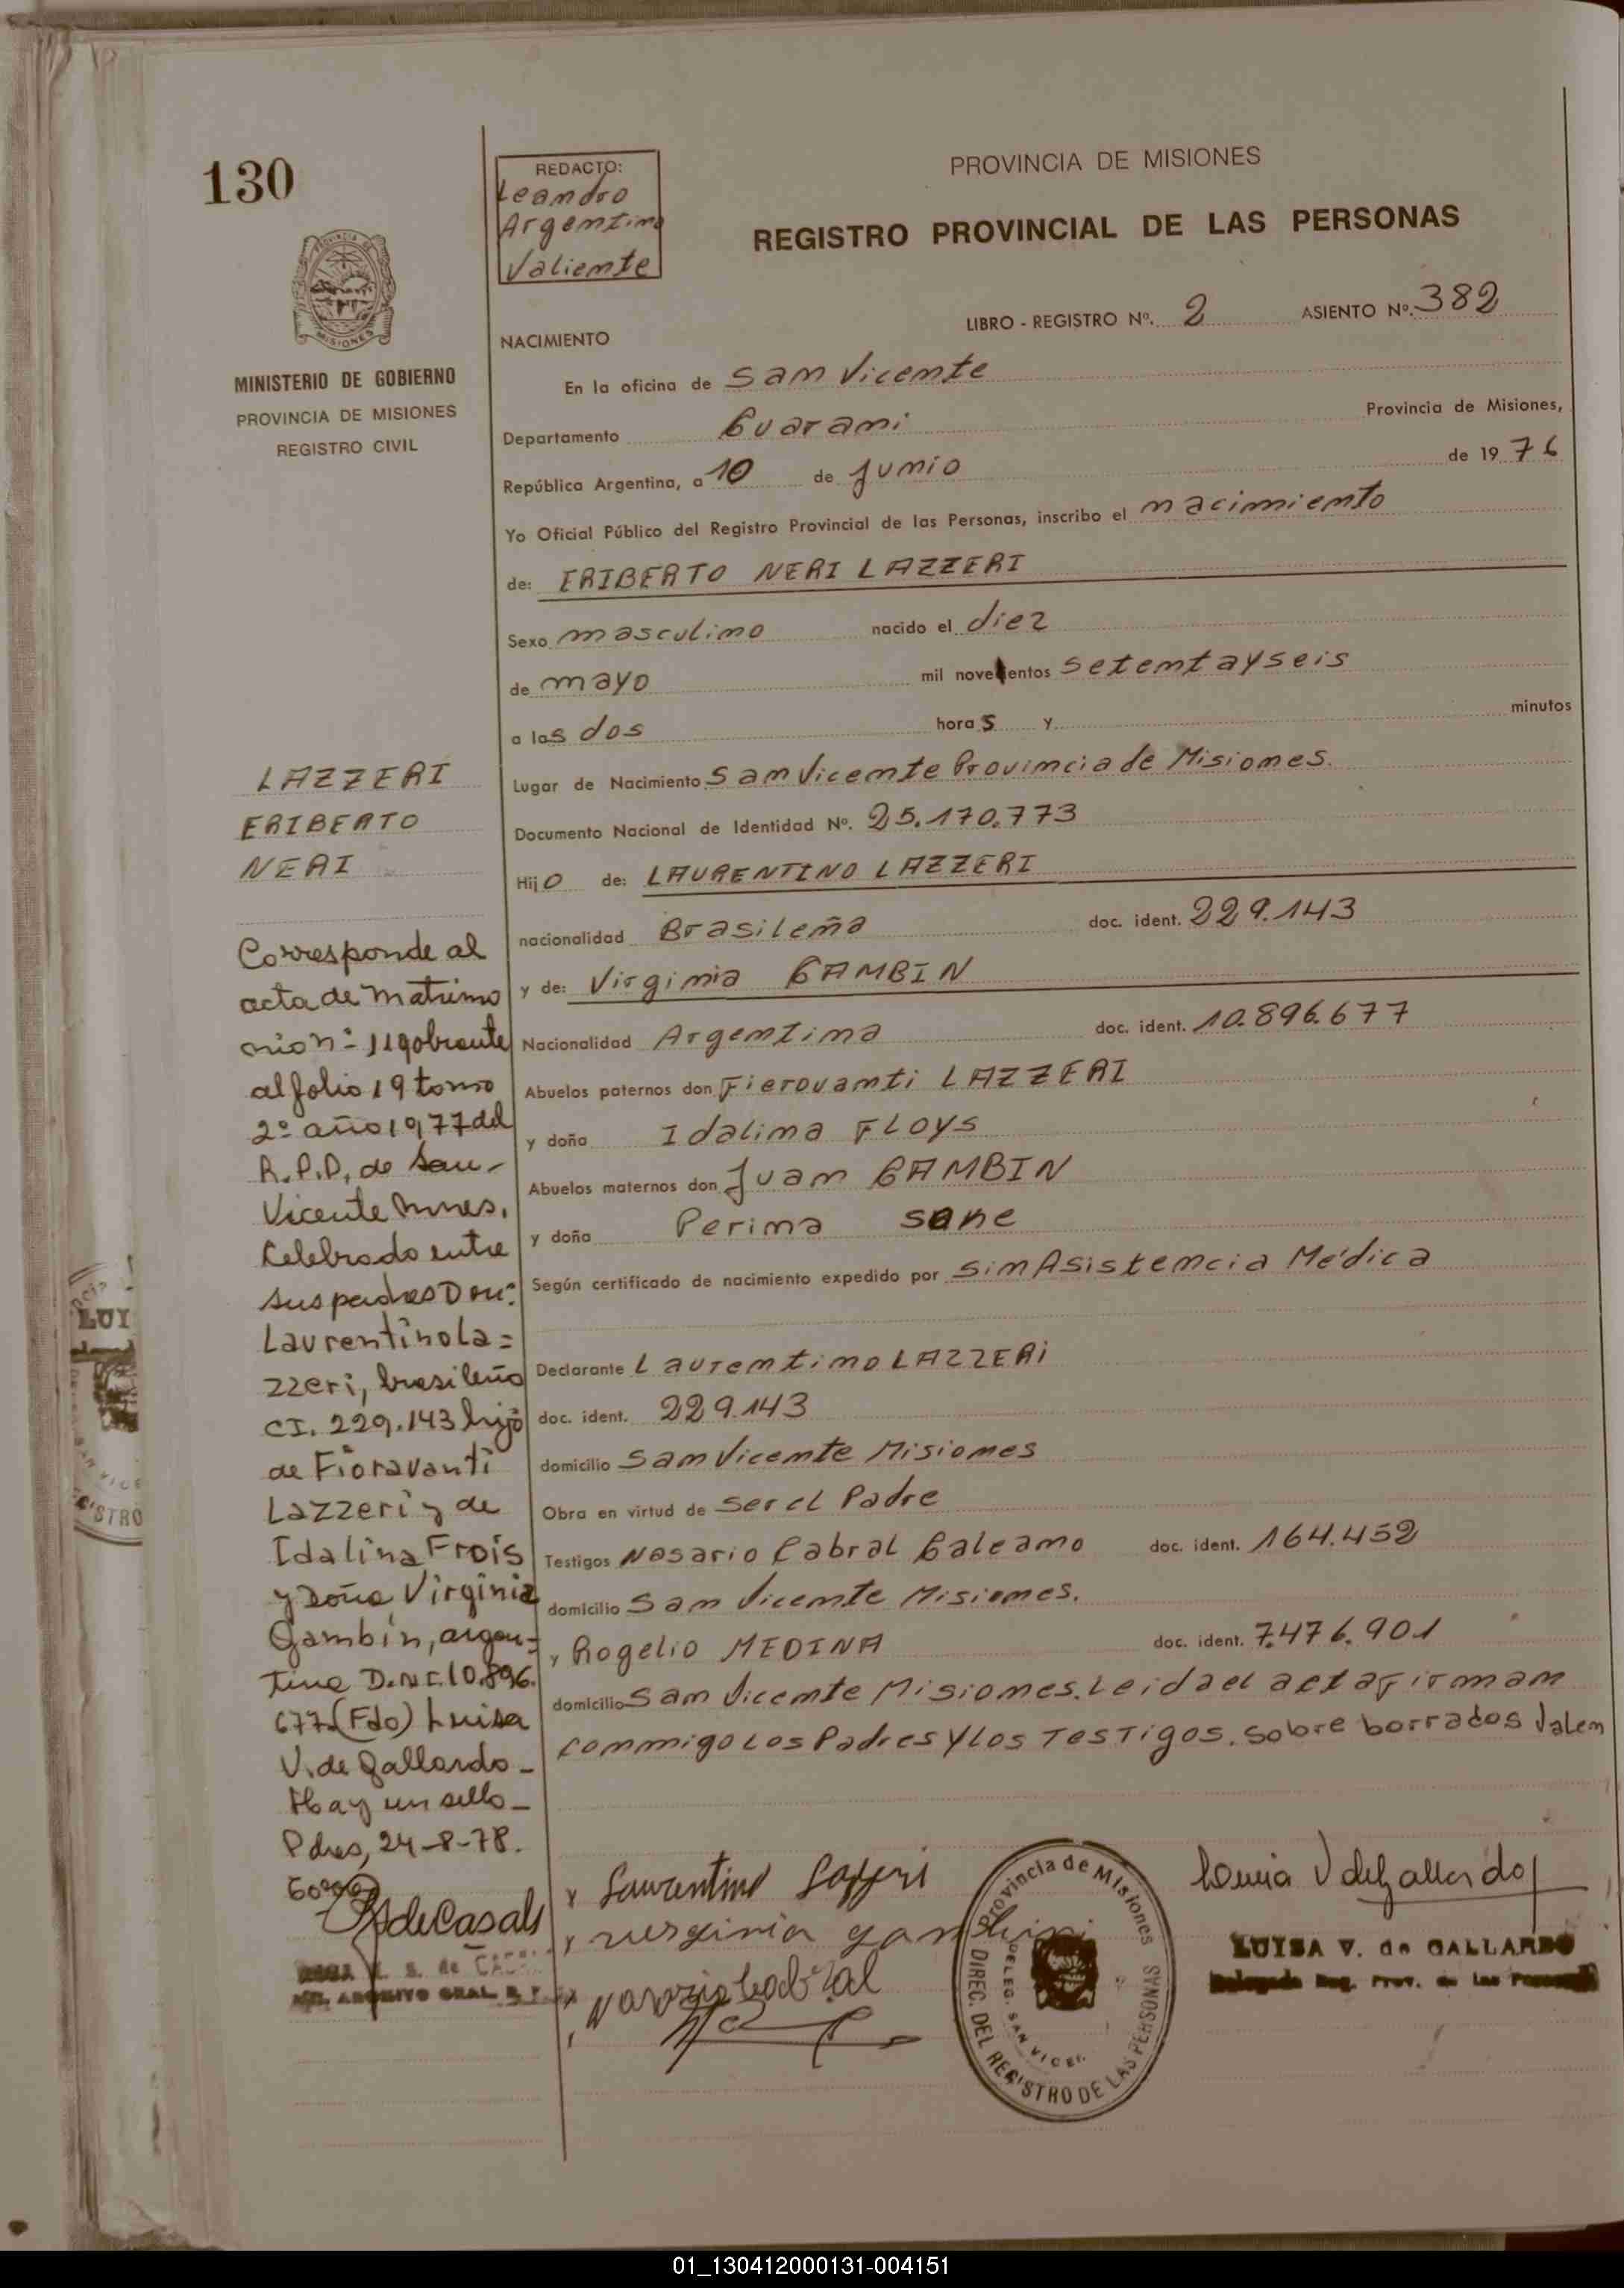 130
REDACTO:
Leandro
Argentino
Valiente
PROVINCIA DE MISIONES
REGISTRO PROVINCIAL DE LAS PERSONAS
PROVINCIA DE
MISIONES
MINISTERIO DE GOBIERNO
PROVINCIA DE MISIONES
REGISTRO CIVIL
LIBRO - REGISTRO Nº. 2 ASIENTO Nº. 382
NACIMIENTO
En la oficina de San Vicente
Departamento Guarani Provincia de Misiones,
República Argentina, a 10 de Junio de 19 76
Yo Oficial Público del Registro Provincial de las Personas, inscribo el nacimiento
de: ERIBERTO NERI LAZZERI
Sexo masculino nacido el diez
de mayo mil novecientos setentayseis
a las dos horas y minutos
Lugar de Nacimiento San Vicente Provincia de Misiones.
Documento Nacional de Identidad Nº. 25.170.773
Hijo de: LAURENTINO LAZZERI
nacionalidad Brasileña doc. ident. 229.143
y de: Virginia GAMBIN
Nacionalidad Argentina doc. ident. 10.896.677
Abuelos paternos don Fierovanti LAZZERI
y doña Idalina FLOYS
Abuelos maternos don Juan GAMBIN
y doña Perina sane
Según certificado de nacimiento expedido por sin Asistencia Médica
Declarante Laurentino LAZZERI
doc. ident. 229.143
domicilio San Vicente Misiones
Obra en virtud de ser el Padre
Testigos Nosario Cabral Galeano doc. ident. 164.452
domicilio San Vicente Misiones.
y Rogelio MEDINA doc. ident. 7.476.901
domicilio San Vicente Misiones. Leida el acta firman
conmigo Los Padres y los Testigos. sobre borrados Valen
LAZZERI
ERIBERTO
NERI
Corresponde al
acta de matrimo
nio nº 119 obrante
al folio 19 tomo
2º año 1977 del
R.P.P. de San
Vicente Mnes.
Celebrado entre
sus padres Don:
Laurentino La=
zzeri, brasileño
CI. 229.143 hijo
de Fioravanti
Lazzeri y de
Idalina Frois
y Doña Virginia
Gambin, argen=
tina D.N.I. 10.896.
677. (Fdo) Luisa
V. de Gallardo -
Hay un sello -
Pdas, 24-8-78.
de Casals
Laurentino Lazzeri
virginia gambin
Nosario Cabral
Provincia de Misiones
DELEG. SAN VICE
DIREC. DEL REGISTRO DE LAS PERSONAS
Luisa V de Gallardo
LUISA V. de GALLARDO
Delegada Reg. Prov. de las Personas
LUI
STRO
01_130412000131-004151